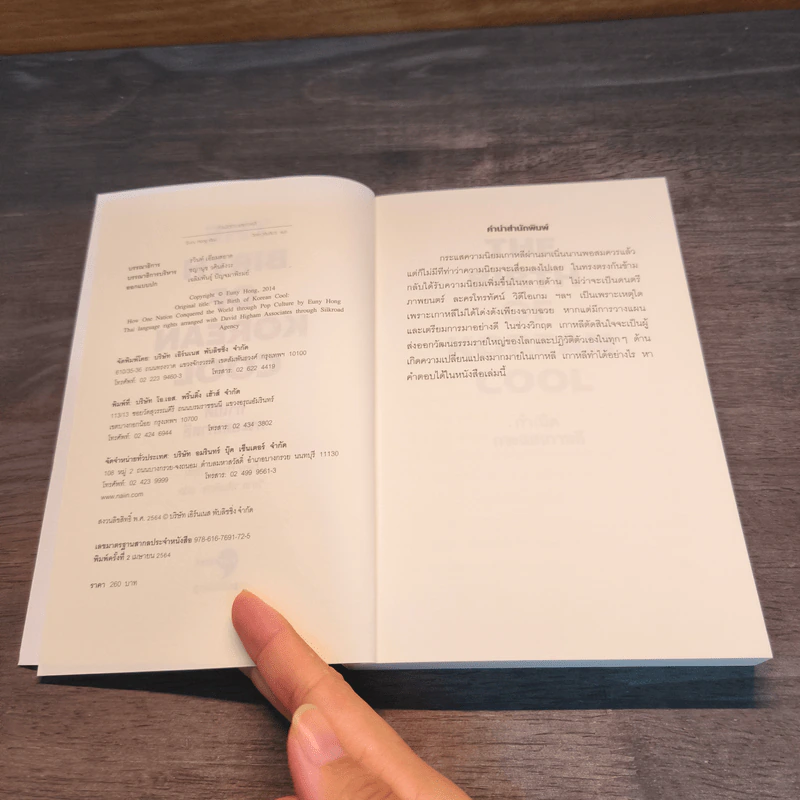 บรรณาธิการ
บรรณาธิการบริหาร
ออกแบบปก
Copyright © Euny Hong, 2014
Original title: The Birth of Korean Cool:
How One Nation Conquered the World through Pop Culture by Euny Hong
Thai language rights arranged with David Higham Associates through Silkroad
Agency
จัดพิมพ์โดย บริษัท เอิร์นเนส พับลิชชิ่ง จำกัด
810/35-36 ถนนทรงวาด แขวงจักรวรรดิ เขตสัมพันธวงศ์ กรุงเทพฯ 10100
โทรศัพท์: 02 223 9460-3 โทรสาร: 02 622 4419
พิมพ์ที่: บริษัท โอ.เอส. พริ้นติ้ง เฮ้าส์ จำกัด
113/13 ซอยวัดสุวรรณคีรี ถนนบรมราชชนนี แขวงอรุณอัมรินทร์
เขตบางกอกน้อย กรุงเทพฯ 10700
โทรศัพท์: 02 424 6944 โทรสาร: 02 434 3802
จัดจำหน่ายทั่วประเทศ: บริษัท อมรินทร์ บุ๊ค เซ็นเตอร์ จำกัด
108 หมู่ 2 ถนนบางกรวย-จงถนอม ตำบลมหาสวัสดิ์ อำเภอบางกรวย นนทบุรี 11130
โทรศัพท์: 02 423 9999 โทรสาร: 02 499 9561-3
www.naiin.com
สงวนลิขสิทธิ์ พ.ศ. 2564 © บริษัท เอิร์นเนส พับลิชชิ่ง จำกัด
เลขมาตรฐานสากลประจำหนังสือ 978-616-7691-72-5
พิมพ์ครั้งที่ 2 เมษายน 2564
ราคา 260 บาท
คำนำสำนักพิมพ์
กระแสความนิยมเกาหลีผ่านมาเนิ่นนานพอสมควรแล้ว
แต่ก็ไม่มีทีท่าว่าความนิยมจะเสื่อมลงไปเลย ในทางตรงกันข้าม
กลับได้รับความนิยมเพิ่มขึ้นในหลายด้าน ไม่ว่าจะเป็นดนตรี
ภาพยนตร์ ละครโทรทัศน์ วิดีโอเกม ฯลฯ เป็นเพราะเหตุใด
เพราะเกาหลีไม่ได้โด่งดังเพียงฉาบฉวย หากแต่มีการวางแผน
และเตรียมการมาอย่างดี ในช่วงวิกฤต เกาหลีตัดสินใจจะเป็นผู้
ส่งออกวัฒนธรรมรายใหญ่ของโลกและปฏิวัติตัวเองในทุกๆ ด้าน
เกิดความเปลี่ยนแปลงมากมายในเกาหลี เกาหลีทำได้อย่างไร หา
คำตอบได้ในหนังสือเล่มนี้